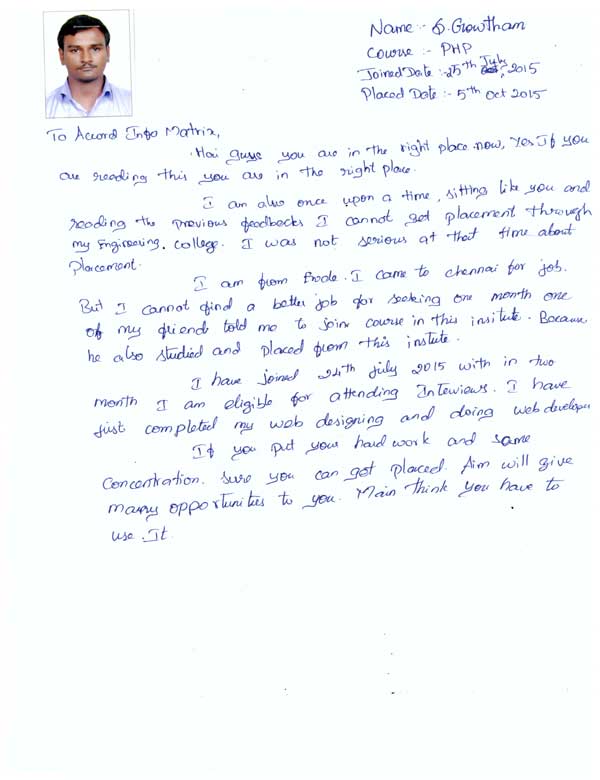 Name :- S. Growtham
Course :- PHP
Joined Date :- 25th July, 2015
Placed Date :- 5th Oct 2015
To Accord Info Matrix,
Hai guys you are in the right place now, Yes If you
are reading this you are in the right place.
I am also once upon a time, sitting like you and
reading the previous feedbacks I cannot get placement through
my Engineering. College. I was not serious at that time about
Placement.
I am from Erode. I came to chennai for job.
But I cannot find a better job for seeking one month one
of my friend told me to join course in this insitute. Because
he also studied and placed from this instute.
I have joined 24th july 2015 with in two
month I am eligible for attending Interviews. I have
just completed my web designing and doing web develope
If you put your hard work and same
Concentration. Sure you can got placed. Aim will give
many opportunities to you. Main Think you have to
use. It.